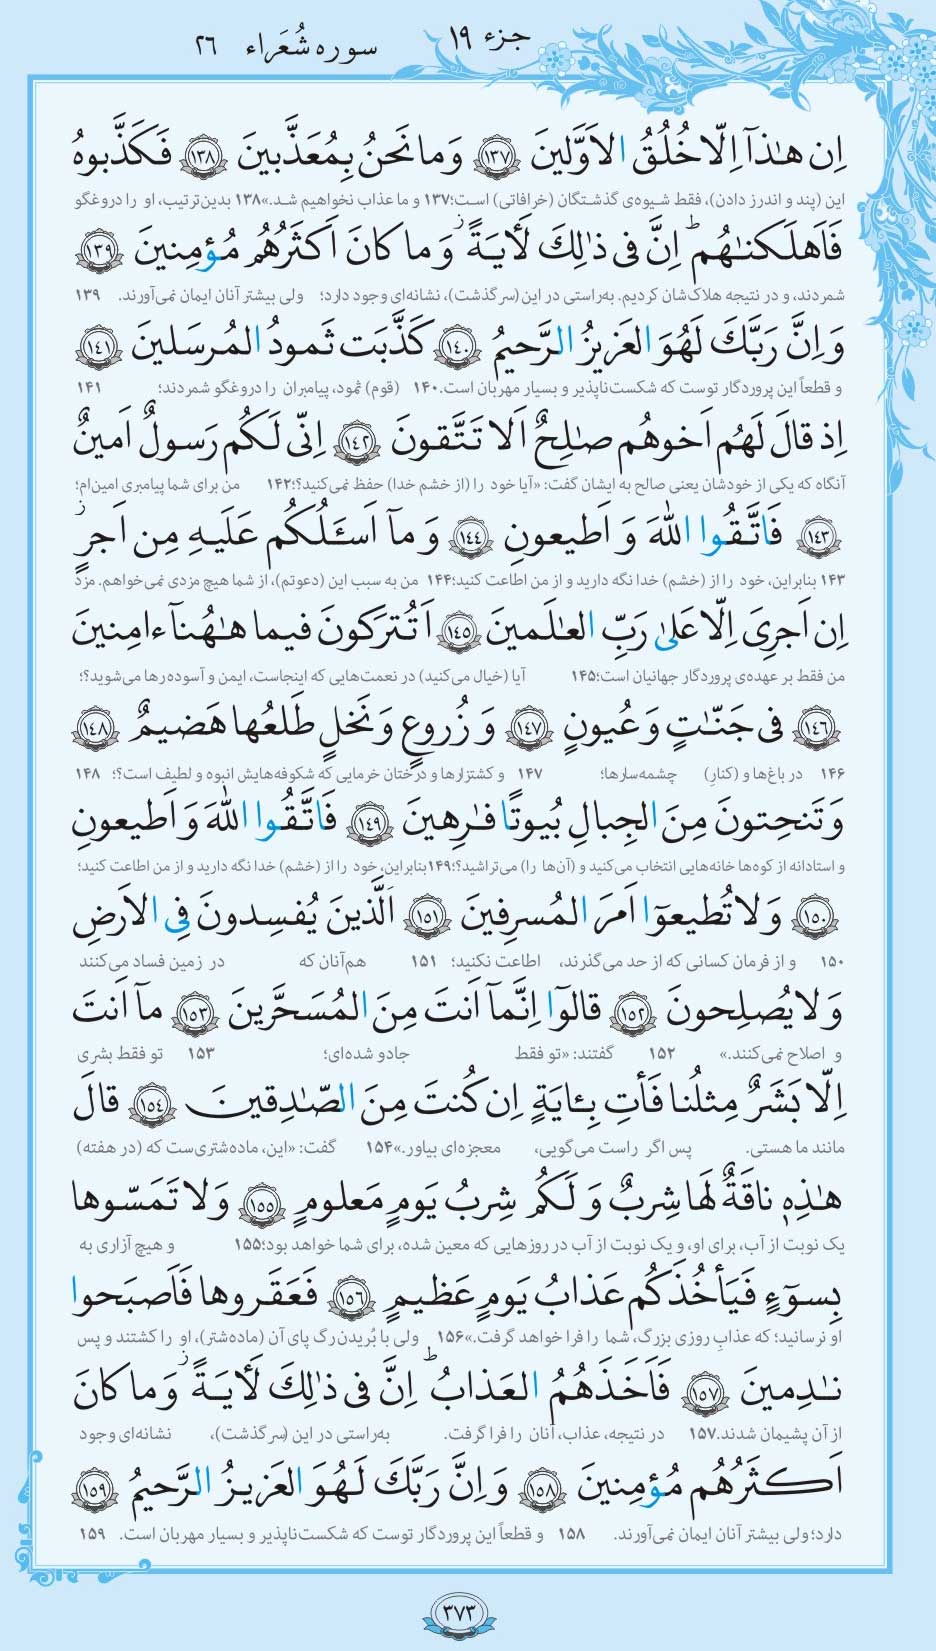 جزء ۱۹ سوره شُعَراء ۲۶
اِن هٰذآ اِلّا خُلُقُ الاَوَّلينَ ﴿١٣٧﴾ وَ ما نَحنُ بِمُعَذَّبينَ ﴿١٣٨﴾ فَكَذَّبوهُ
این (پند و اندرز دادن)، فقط شیوه‌ی گذشتگان (خرافاتی) است؛۱۳۷ و ما عذاب نخواهیم شد.»۱۳۸ بدین‌ترتیب، او را دروغگو
فَاَهلَكنٰهُم ؕ اِنَّ فى ذٰلِكَ لَأٰيَةً ز وَ ما كانَ اَكثَرُهُم مُؤمِنينَ ﴿١٣٩﴾
شمردند، و در نتیجه هلاک‌شان کردیم. به‌راستی در این (سرگذشت)، نشانه‌ای وجود دارد؛ ولی بیشتر آنان ایمان نمی‌آورند. ۱۳۹
وَ اِنَّ رَبَّكَ لَهُوَ العَزيزُ الرَّحيمُ ﴿١٤٠﴾ كَذَّبَت ثَمودُ المُرسَلينَ ﴿١٤١﴾
و قطعاً این پروردگار توست که شکست‌ناپذیر و بسیار مهربان است.۱۴۰ (قوم) ثمود، پیامبران را دروغگو شمردند؛ ۱۴۱
اِذ قالَ لَهُم اَخوهُم صٰلِحٌ اَلا تَتَّقونَ ﴿١٤٢﴾ اِنّى لَكُم رَسولٌ اَمينٌ
آنگاه که یکی از خودشان یعنی صالح به ایشان گفت: «آیا خود را (از خشم خدا) حفظ نمی‌کنید؟؛۱۴۲ من برای شما پیامبری امین‌ام؛
﴿١٤٣﴾ فَاتَّقُوا اللّٰهَ وَ اَطيعونِ ﴿١٤٤﴾ وَ مآ اَسـَٔلُكُم عَلَيهِ مِن اَجرٍ ز
۱۴۳ بنابراین، خود را از (خشم) خدا نگه دارید و از من اطاعت کنید؛۱۴۴ من به سبب این (دعوتم)، از شما هیچ مزدی نمی‌خواهم. مزد
اِن اَجرِىَ اِلّا عَلىٰ رَبِّ العٰلَمينَ ﴿١٤٥﴾ اَتُترَكونَ فيما هٰهُنآ ءامِنينَ
من فقط بر عهده‌ی پروردگار جهانیان است؛۱۴۵ آیا (خیال می‌کنید) در نعمت‌هایی که اینجاست، ایمن و آسوده رها می‌شوید؟؛
﴿١٤٦﴾ فى جَنّٰتٍ وَ عُيونٍ ﴿١٤٧﴾ وَ زُروعٍ وَ نَخلٍ طَلعُها هَضيمٌ ﴿١٤٨﴾
۱۴۶ در باغ‌ها و (کنارِ) چشمه‌سارها؛ ۱۴۷ و کشتزارها و درختان خرمایی که شکوفه‌هایش انبوه و لطیف است؟؛ ۱۴۸
وَ تَنحِتونَ مِنَ الجِبالِ بُيوتًا فٰرِهينَ ﴿١٤٩﴾ فَاتَّقُوا اللّٰهَ وَ اَطيعونِ
و استادانه از کوه‌ها خانه‌هایی انتخاب می‌کنید و (آن‌ها را) می‌تراشید؟؛۱۴۹ بنابراین، خود را از (خشم) خدا نگه دارید و از من اطاعت کنید؛
﴿١٥٠﴾ وَ لا تُطيعوٓا اَمرَ المُسرِفينَ ﴿١٥١﴾ اَلَّذينَ يُفسِدونَ فِى الاَرضِ
۱۵۰ و از فرمان کسانی که از حد می‌گذرند، اطاعت نکنید؛ ۱۵۱ هم‌آنان که در زمین فساد می‌کنند
وَ لا يُصلِحونَ ﴿١٥٢﴾ قالوٓا اِنَّمآ اَنتَ مِنَ المُسَحَّرينَ ﴿١٥٣﴾ مآ اَنتَ
و اصلاح نمی‌کنند.» ۱۵۲ گفتند: «تو فقط جادو شده‌ای؛ ۱۵۳ تو فقط بشری
اِلّا بَشَرٌ مِثلُنا فَأتِ بِـٔايَةٍ اِن كُنتَ مِنَ الصّٰدِقينَ ﴿١٥٤﴾ قالَ
مانند ما هستی. پس اگر راست می‌گویی، معجزه‌ای بیاور.»۱۵۴ گفت: «این، ماده‌شتری‌ست که (در هفته)
هٰذِهٖ ناقَةٌ لَها شِربٌ وَ لَكُم شِربُ يَومٍ مَعلومٍ ﴿١٥٥﴾ وَ لا تَمَسّوها
یک نوبت از آب، برای او، و یک نوبت از آب در روزهایی که معین شده، برای شما خواهد بود؛۱۵۵ و هیچ آزاری به
بِسوٓءٍ فَيَأخُذَكُم عَذابُ يَومٍ عَظيمٍ ﴿١٥٦﴾ فَعَقَروها فَاَصبَحوا
او نرسانید؛ که عذابِ روزی بزرگ، شما را فرا خواهد گرفت.»۱۵۶ ولی با بُریدن رگ پای آن (ماده‌شتر)، او را کشتند و پس
نٰدِمينَ ﴿١٥٧﴾ فَاَخَذَهُمُ العَذابُ ؕ اِنَّ فى ذٰلِكَ لَأٰيَةً ز وَ ما كانَ
از آن پشیمان شدند.۱۵۷ در نتیجه، عذاب، آنان را فرا گرفت. به‌راستی در این (سرگذشت)، نشانه‌ای وجود
اَكثَرُهُم مُؤمِنينَ ﴿١٥٨﴾ وَ اِنَّ رَبَّكَ لَهُوَ العَزيزُ الرَّحيمُ ﴿١٥٩﴾
دارد؛ ولی بیشتر آنان ایمان نمی‌آورند. ۱۵۸ و قطعاً این پروردگار توست که شکست‌ناپذیر و بسیار مهربان است. ۱۵۹
۳۷۳